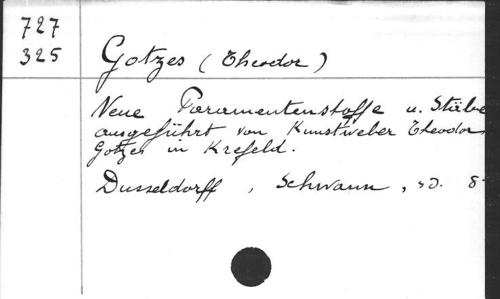 727
325
Gotzes (Theodor)
Neue Paramentenstoffe u. Stäbe
ausgeführt von Kunstweber Theodor
Gotzes in Krefeld.
Dusseldorff, Schwann, s.d. 8